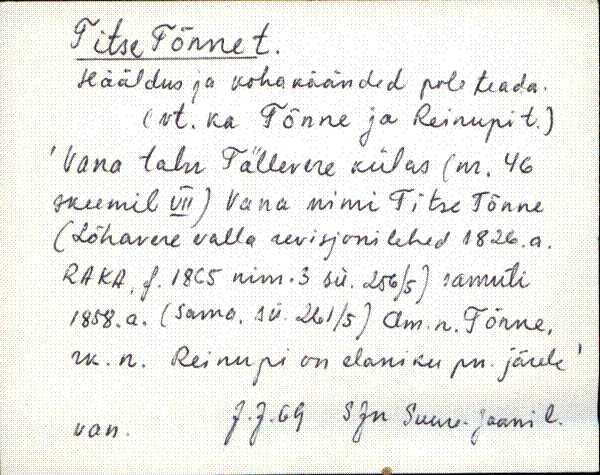 Titse Tõnne t.
Hääldus ja kohakäänded pole teada.
(vt. ka Tõnne ja Reinupi t.)
'Vana talu Tällevere külas (nr. 46
skeemil VII) Vana nimi Titse Tõnne
(Lõhavere valla revisjonilehed 1826.a.
RAKA, f. 1865 nim. 3 sü. 256/5) samuti
1858.a. (samo. sü. 261/5) Am. n. Tõnne,
rk. n. Reinupi on elaniku pn. järele'
van. J.J. 69 SJn Suure-Jaani l.